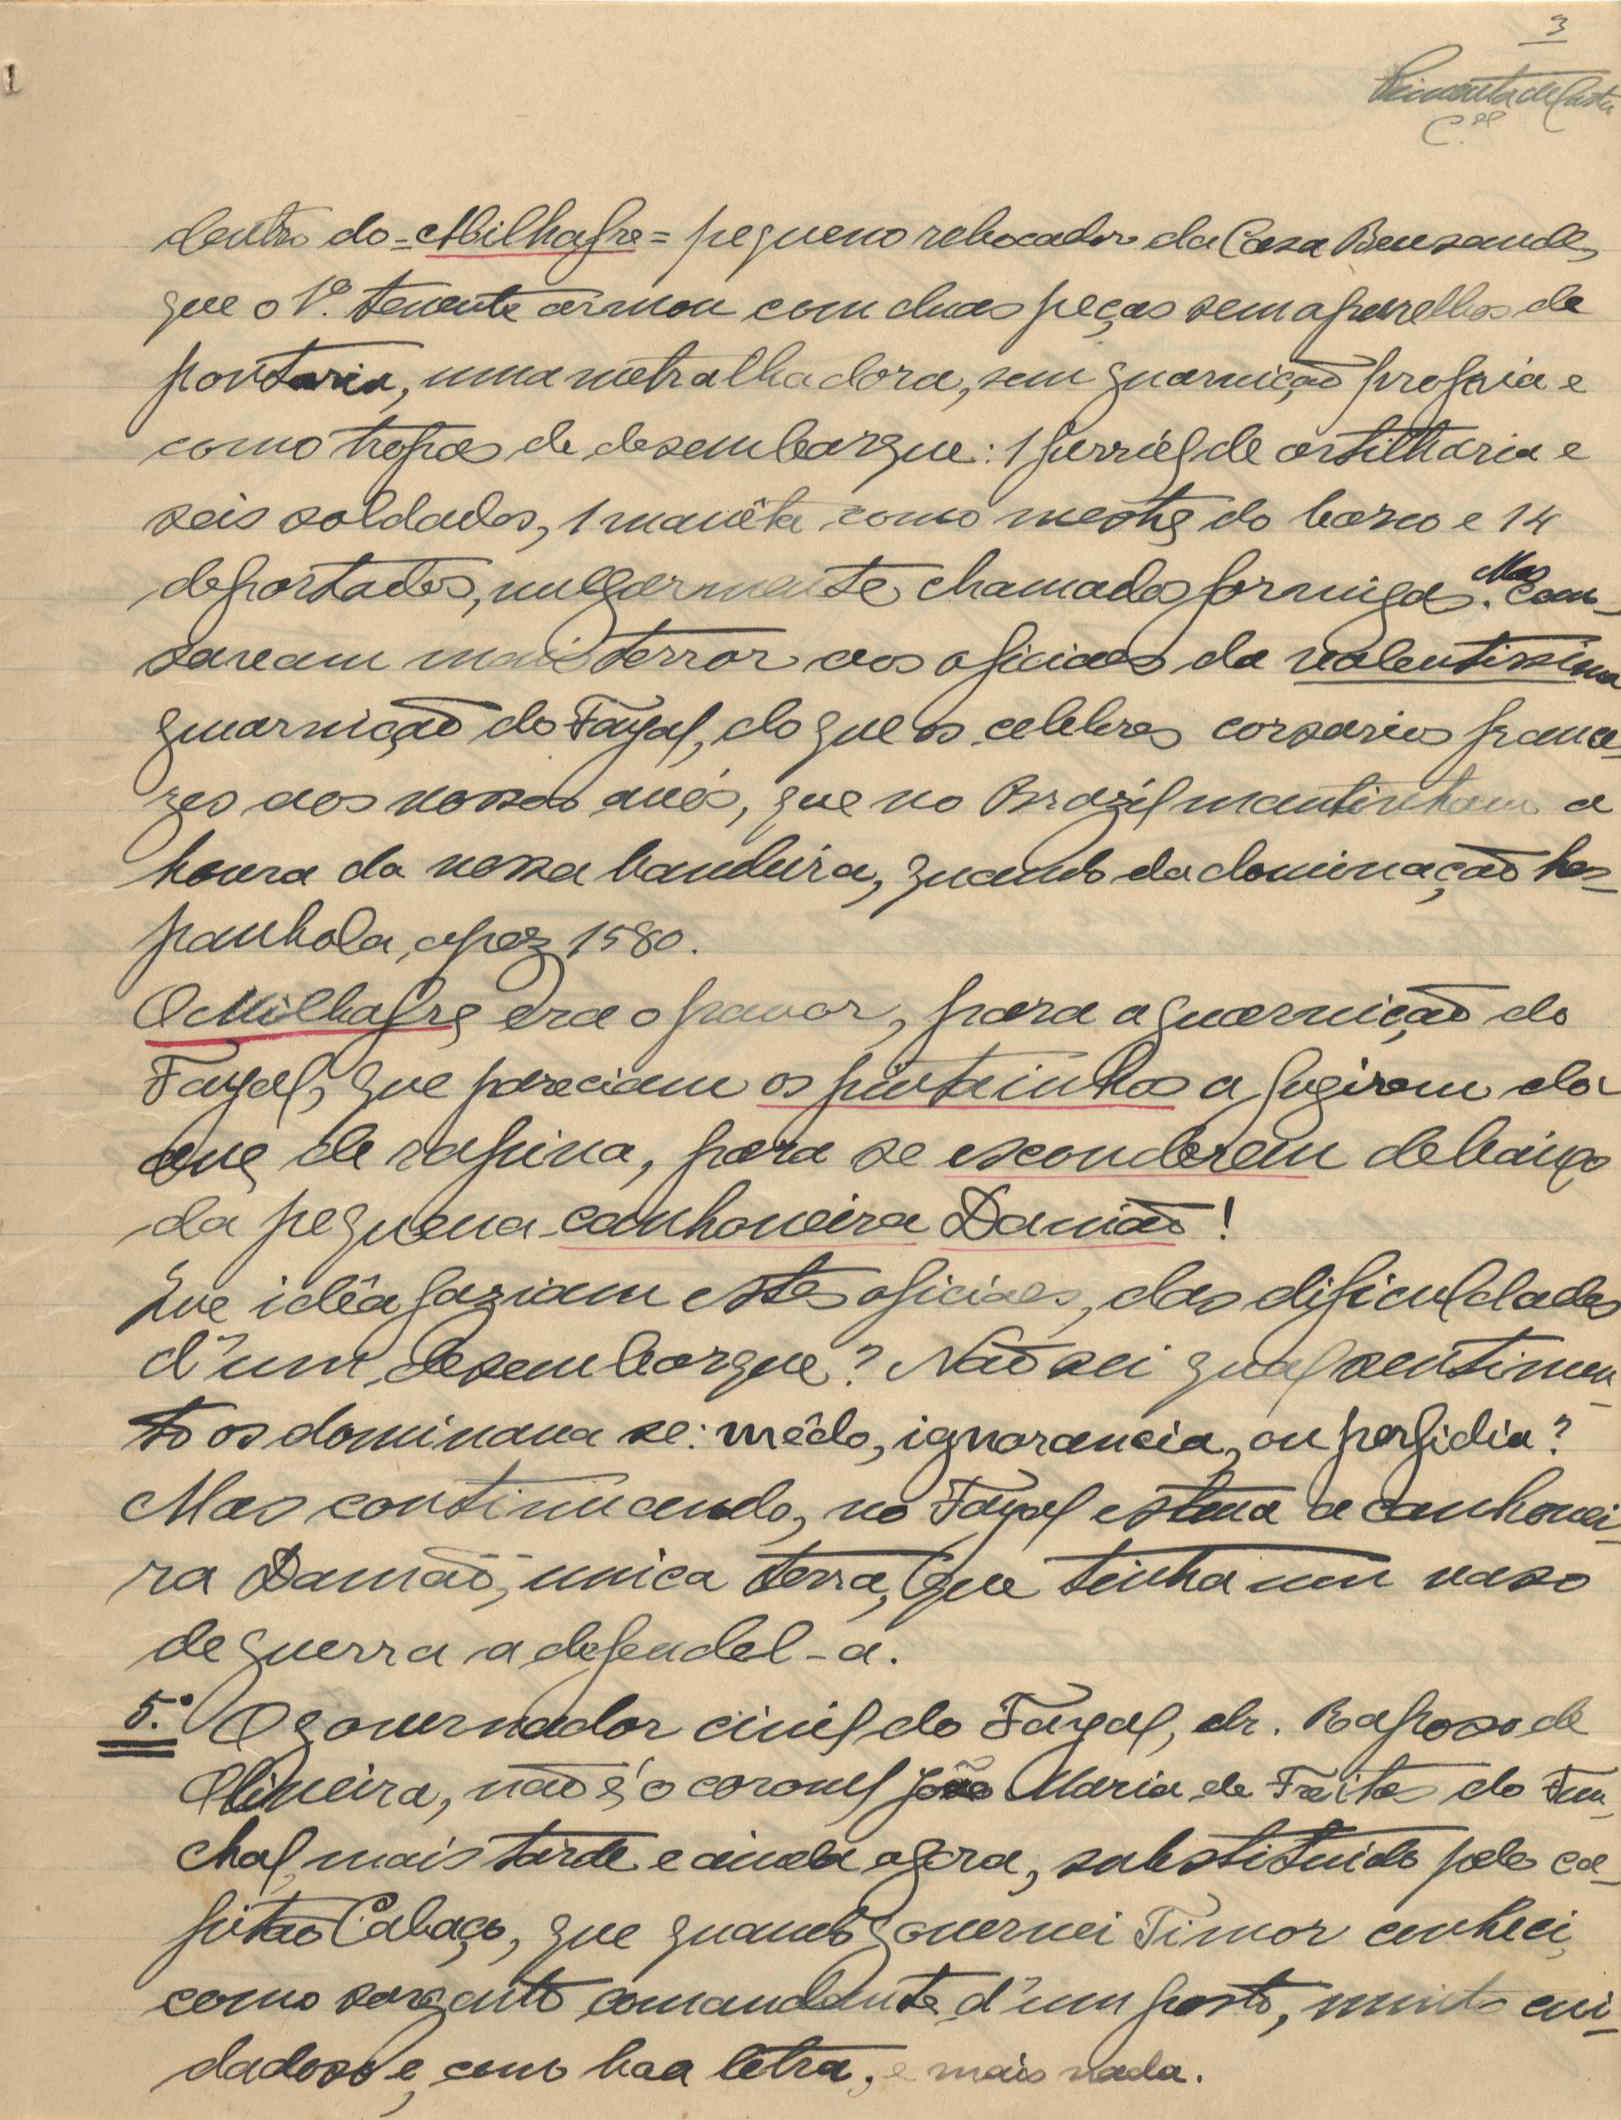 3
Pimenta de Castro
C.el
dentro do = Milhafre = pequeno rebocador da Casa Bensaude,
que o 1º. tenente armou com duas peças sem aparelhos de
pontaria, uma metralhadora, sem guarnição propria e
como tropas de desembarque: 1 furriél de artilharia e
seis soldados, 1 manêta como mestre do barco e 14
deportados, vulgarmente chamados formigas. Mas cau-
savam mais terror aos oficiaes da valentissima
guarnição do Fayal, do que os celebres corsarios france-
zes aos nossos avós, que no Brazil mantinham a
honra da nossa bandeira, quando da dominação hes-
panhola, apoz 1580.
O Milhafre era o pavor, para a guarnição do
Fayal, que pareciam os pintainhos a fugirem da
ave de rapina, para se esconderem debaixo
da pequena canhoneira Damão!
Que idêa faziam estes oficiaes, das dificuldades
d'um desembarque? Não sei qual sentimen-
to os dominava se: mêdo, ignorancia, ou perfidia?
Mas continuando, no Fayal estava a canhonei-
ra Damão, unica terra, que tinha um vaso
de guerra a defendel-a.
5.º O governador civil do Fayal, dr. Raposo de
Oliveira, não é o coronel João Maria de Freitas do Fun-
chal, mais tarde e ainda agora, substituido pelo ca-
pitão Cabaço, que quando governei Timor conheci,
como sargento comandante d'um posto, muito cui-
dadoso e com boa letra, e mais nada.